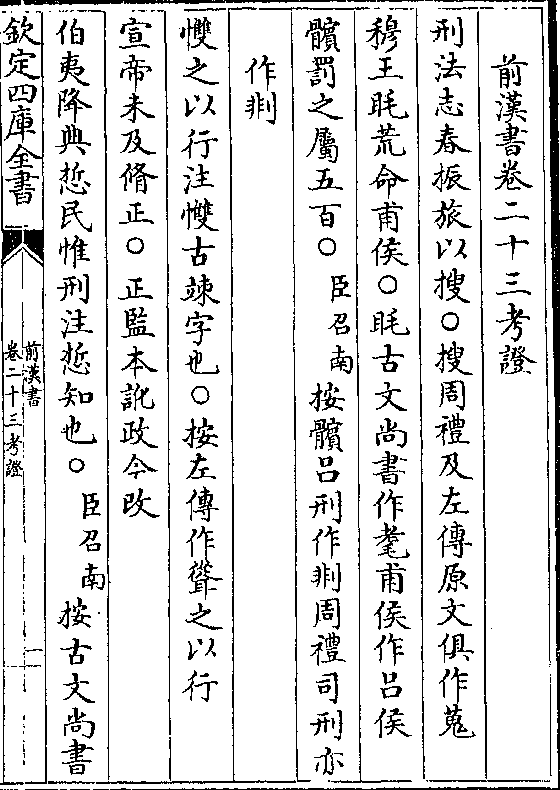 前漢書卷二十三考證
刑法志春振旅以搜○搜周禮及左傳原文俱作蒐
穆王眊荒命甫侯○眊古文尚書作耄甫侯作吕侯
髕罰之屬五百○臣召南按髕吕刑作剕周禮司刑亦
作剕
㦼之以行注㦼古竦字也○按左傳作聳之以行
宣帝未及脩正○正監本訛政今改
伯夷降典悊民惟刑注悊知也○臣召南按古文尚書
欽定四庫全書
前漢書
卷二十三考證
一